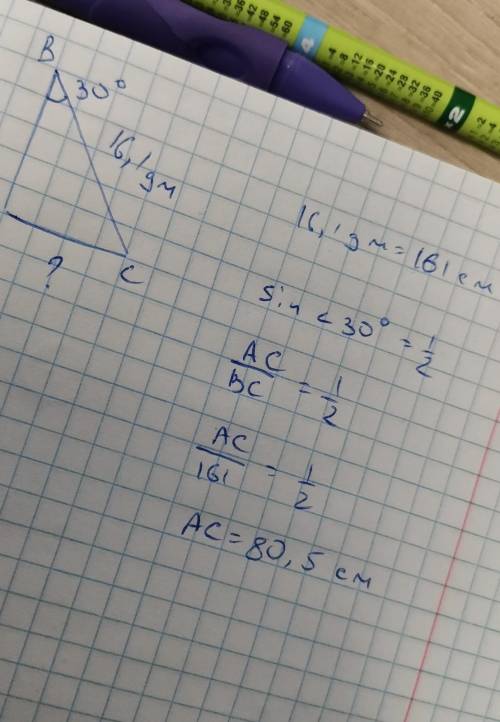 B
30°
16,1 дм
?
C
16,1 дм = 161 см
sin < 30° = 1/2
AC/BC = 1/2
AC/161 = 1/2
AC = 80,5 см